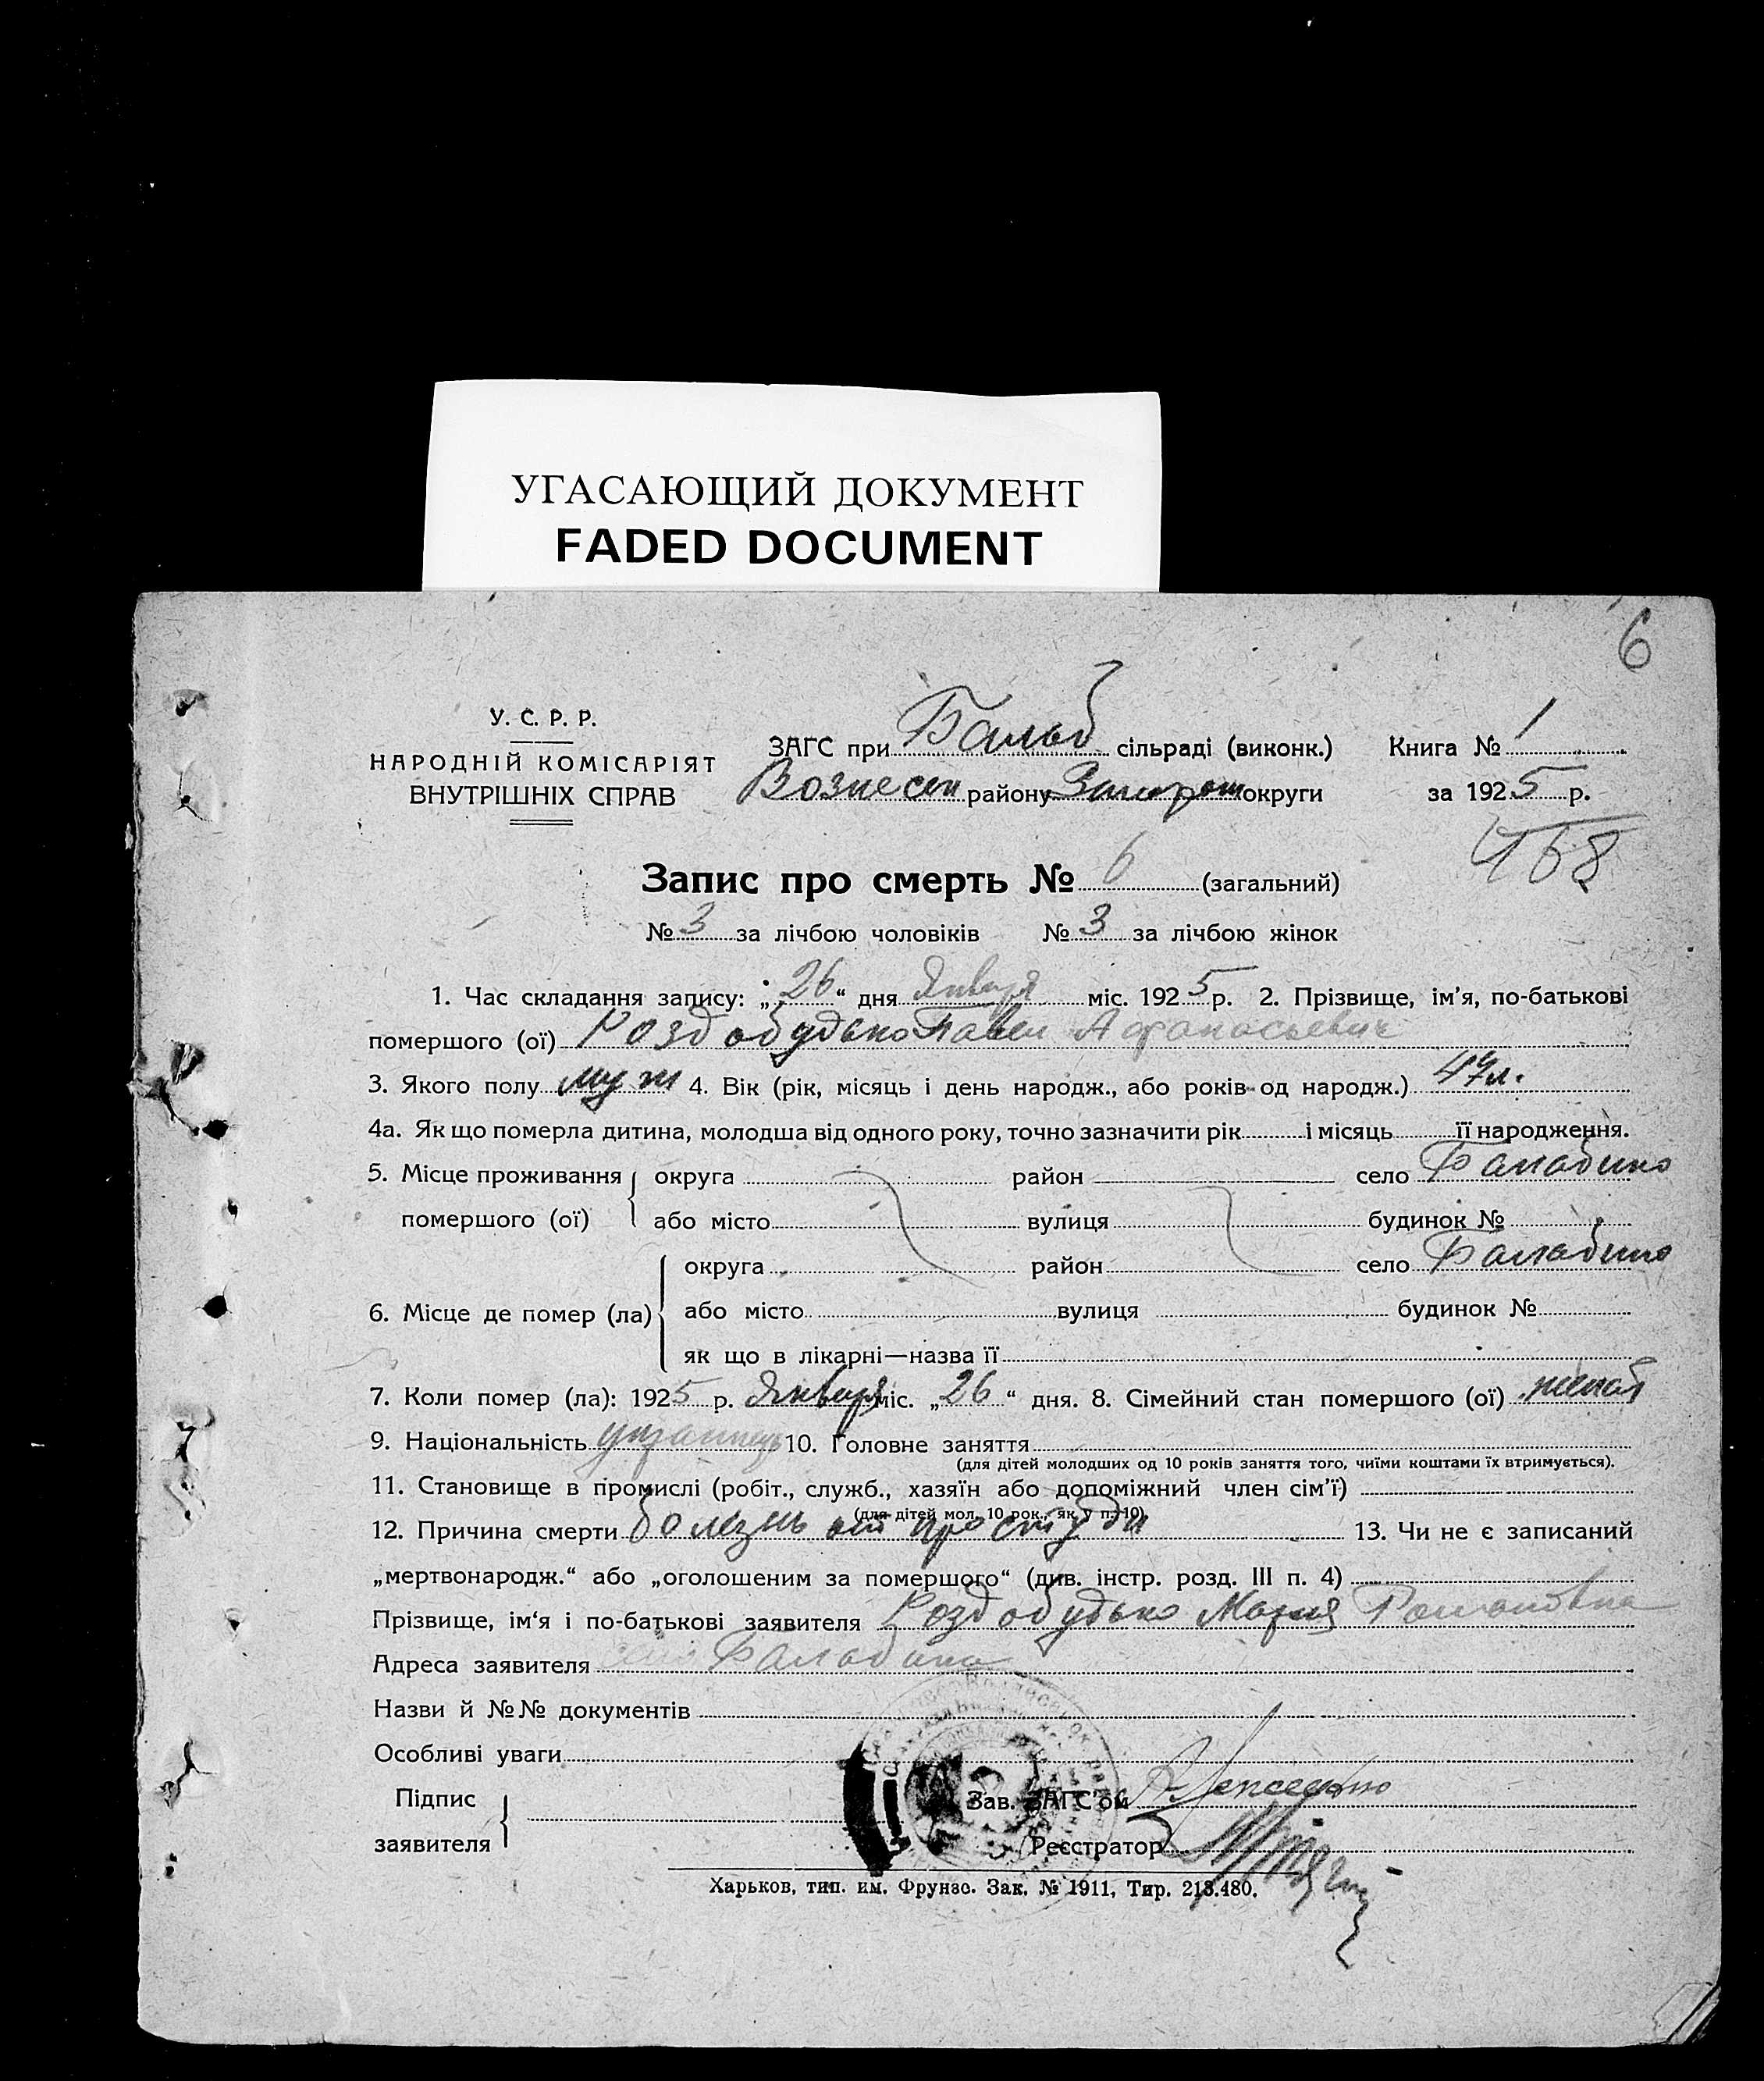 УГАСАЮЩИЙ ДОКУМЕНТ
FADED DOCUMENT
6
У. С. Р. Р.
НАРОДНІЙ КОМІСАРІЯТ
ВНУТРІШНІХ СПРАВ
ЗАГС при Балаб сільраді (виконк.) Книга № 1
Вознесен району Запорож округи за 1925 р.
468
Запис про смерть № 6 (загальний)
№ 3 за лічбою чоловіків № 3 за лічбою жінок
1. Час складання запису: „26“ дня Января міс. 1925 р. 2. Прізвище, ім'я, по-батькові
помершого (ої) Роздобудько Павел Афанасьевич
3. Якого полу муж 4. Вік (рік, місяць і день народж., або років од народж.) 47 л.
4а. Як що померла дитина, молодша від одного року, точно зазначити рік і місяць її народження.
5. Місце проживання округа район село Балабино
помершого (ої) або місто вулиця будинок №
округа район село Балабино
6. Місце де помер (ла) або місто вулиця будинок №
як що в лікарні—назва її
7. Коли помер (ла): 1925 р. Января міс. „26“ дня. 8. Сімейний стан помершого (ої) женат
9. Національність украинець 10. Головне заняття
(для дітей молодших од 10 років заняття того, чиїми коштами їх втримується).
11. Становище в промислі (робіт., служб., хазяїн або допоміжний член сім'ї)
(для дітей мол. 10 рок., як у п. 10)
12. Причина смерти болезнь от простуди 13. Чи не є записаний
„мертвонародж.“ або „оголошеним за помершого“ (див. інстр. розд. III п. 4)
Прізвище, ім'я і по-батькові заявителя Роздобудько Мария Романовна
Адреса заявителя село Балабино
Назви й №№ документів
Особливі уваги
Підпис
заявителя
Зав. ЗАГС'ом
Реєстратор
Харьков, тип. им. Фрунзе. Зак. № 1911, Тир. 213.480.